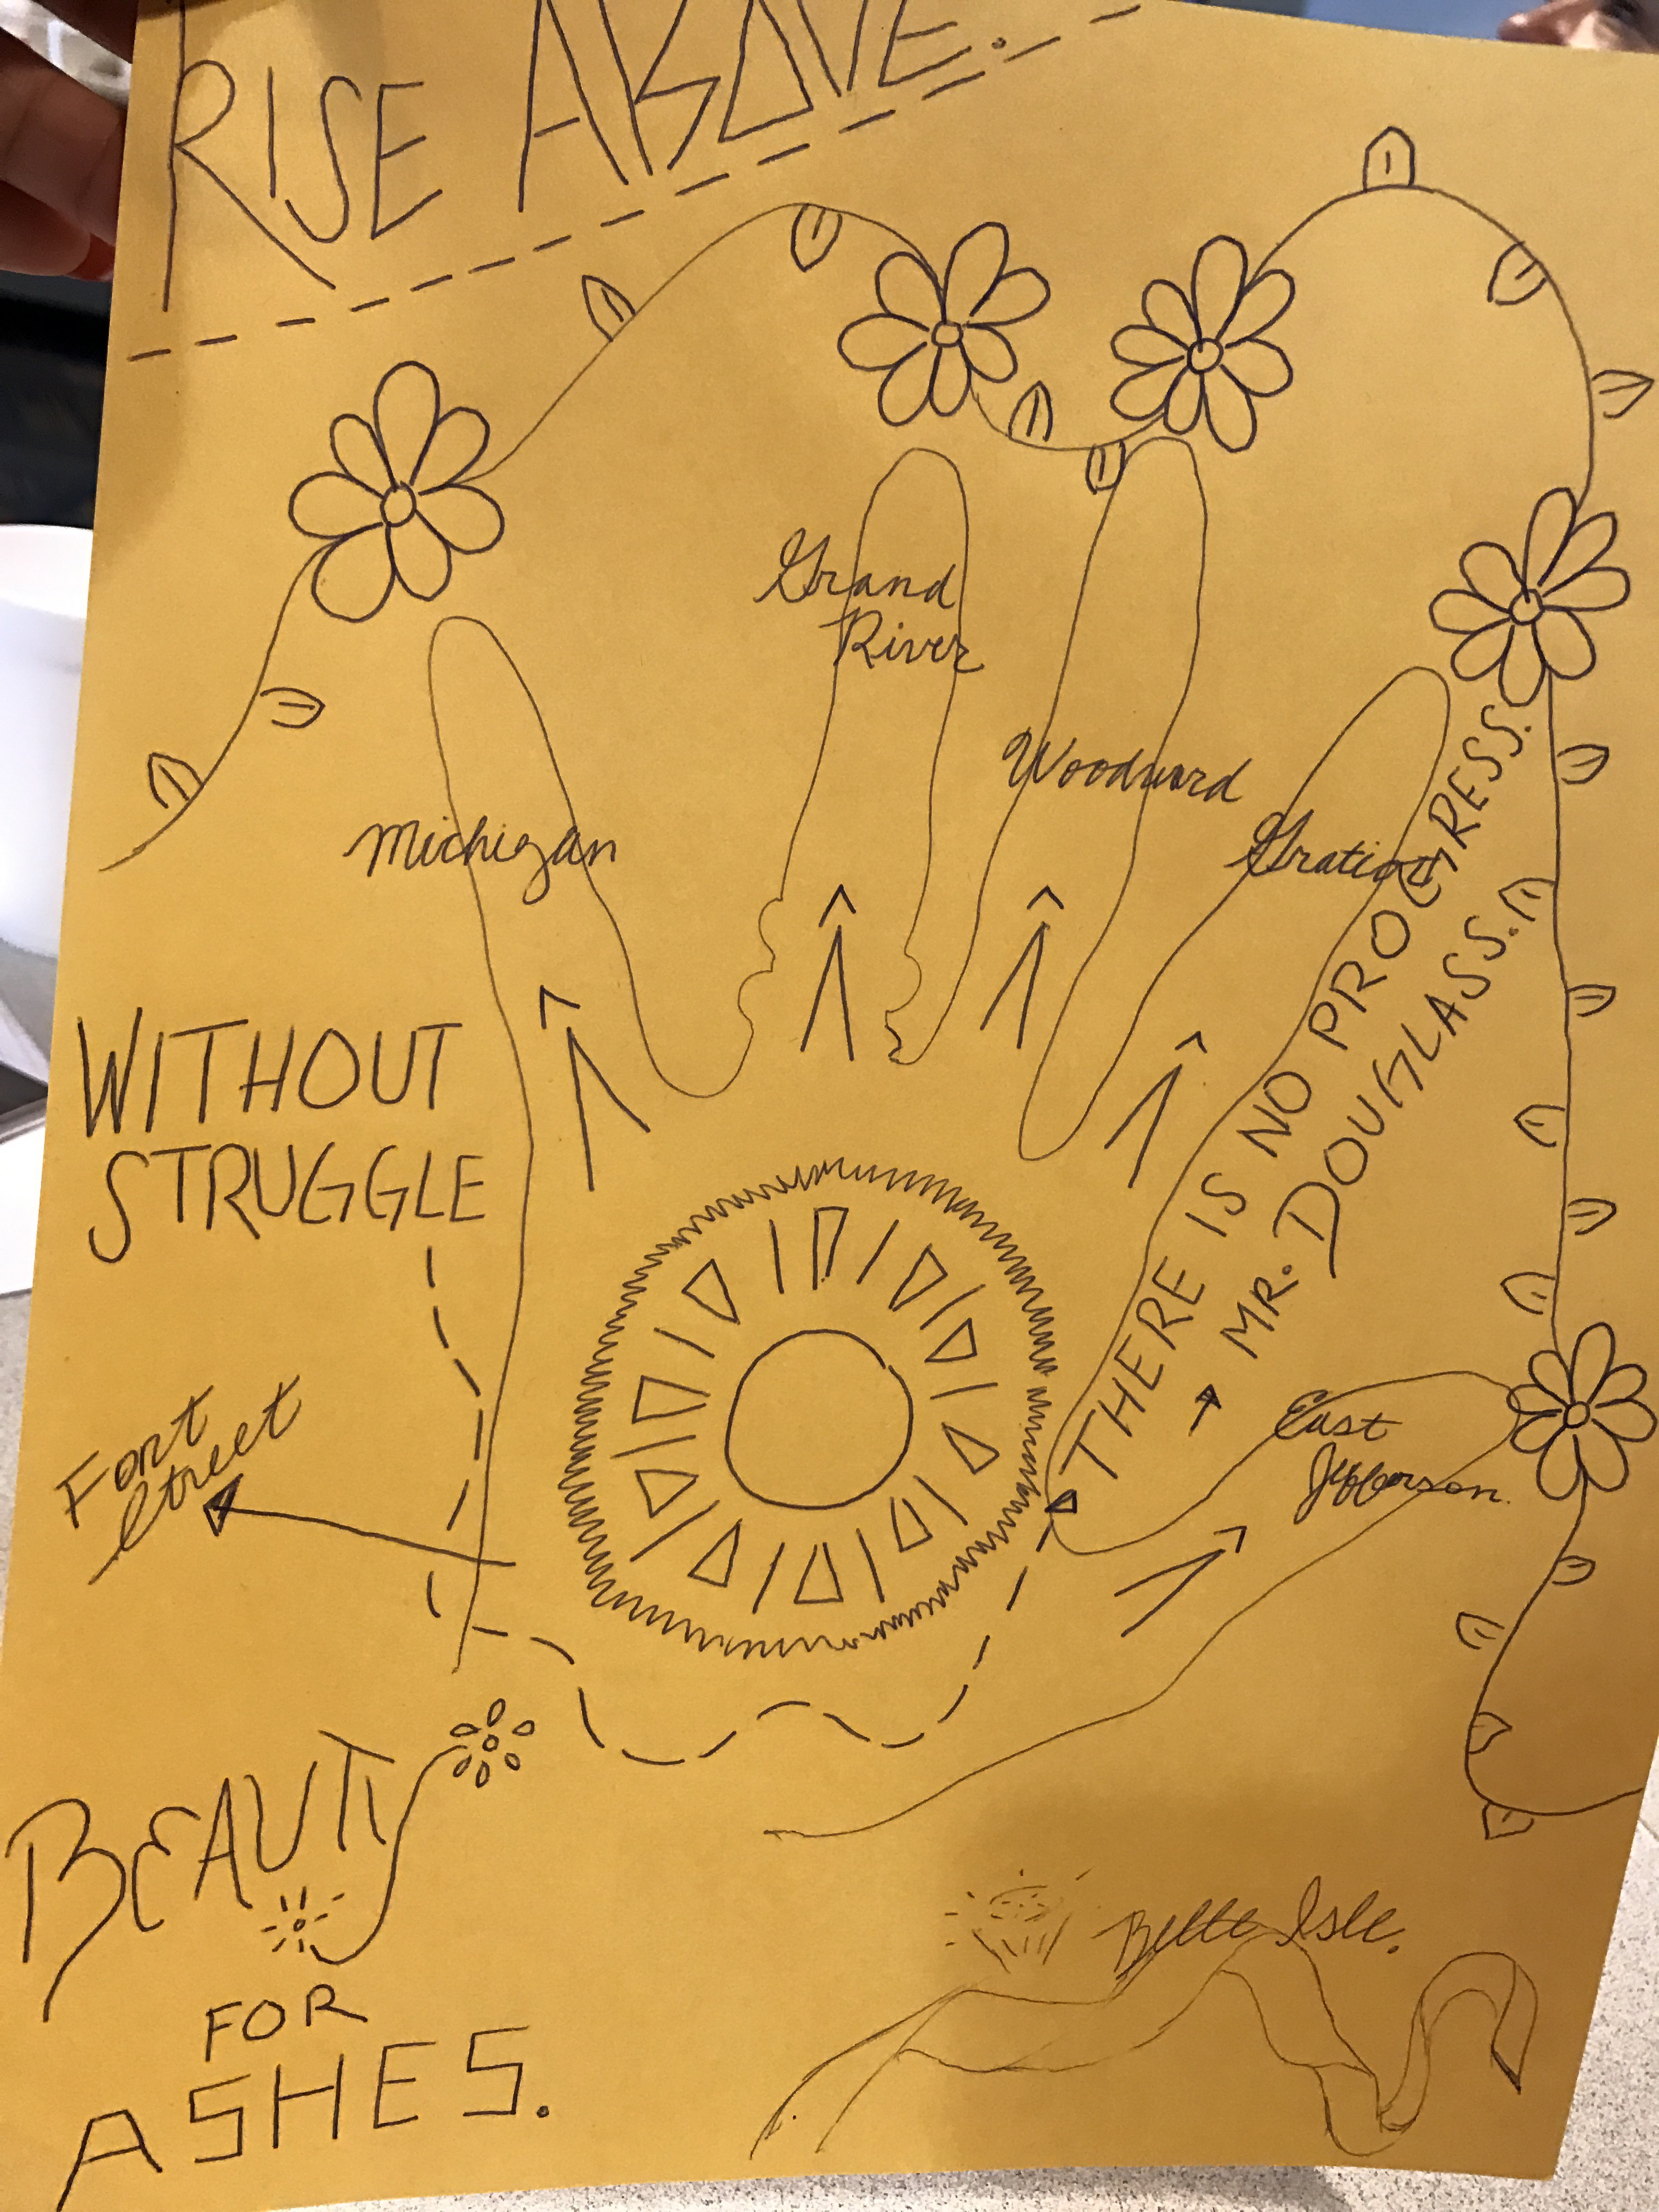 RISE ABOVE.
Grand
River
Woodward
Michigan
Gratiot
WITHOUT
STRUGGLE
THERE IS NO PROGRESS.
MR. DOUGLASS.
East
Jefferson.
Fort
Street
BEAUTY
FOR
ASHES.
Belle Isle.